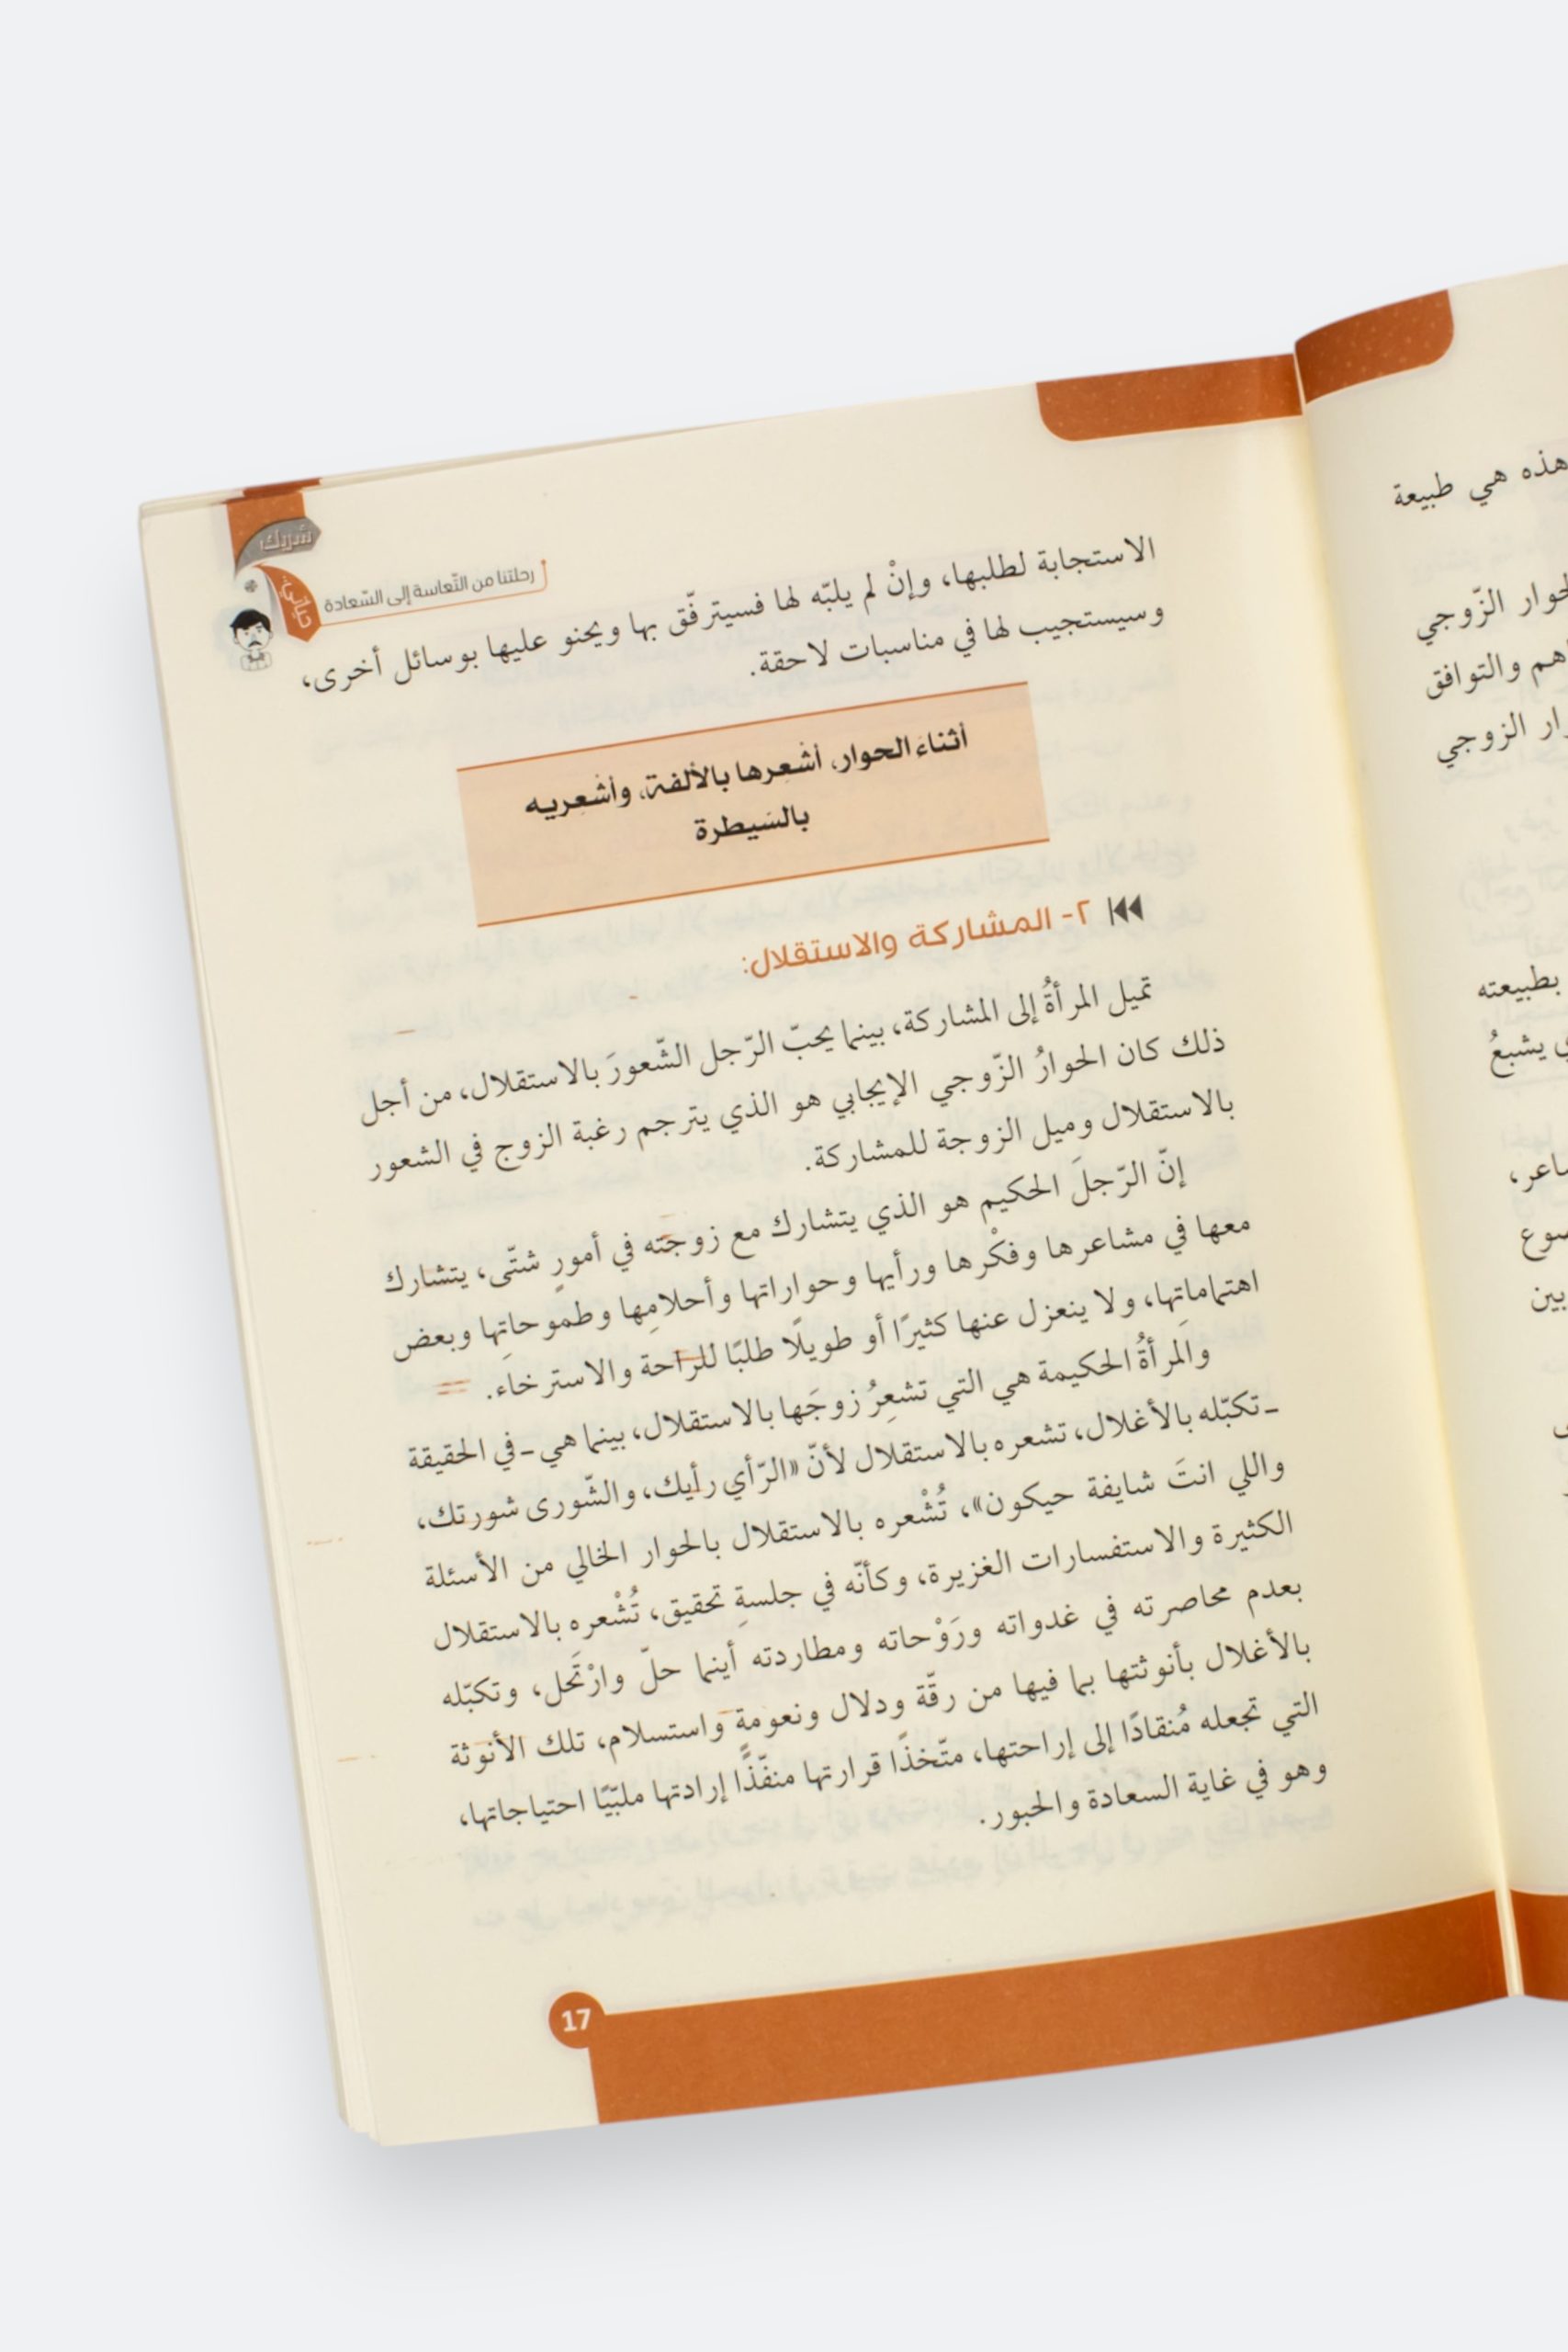 شريك
حياتي
رحلتنا من التّعاسة إلى السّعادة
الاستجابة لطلبها، وإنْ لم يلبّه لها فسيترفّق بها ويحنو عليها بوسائل أخرى،
وسيستجيب لها في مناسبات لاحقة.
أثناءَ الحوار، أشْعِرها بالألفة، وأشْعِريه
بالسّيطرة
٢- المشاركة والاستقلال:
تميل المرأةُ إلى المشاركة، بينما يحبّ الرّجل الشّعورَ بالاستقلال، من أجل
ذلك كان الحوارُ الزّوجي الإيجابي هو الذي يترجم رغبة الزوج في الشعور
بالاستقلال وميل الزوجة للمشاركة.
إنّ الرّجلَ الحكيم هو الذي يتشارك مع زوجته في أمورٍ شتّى، يتشارك
معها في مشاعرها وفكْرها ورأيها وحواراتها وأحلامِها وطموحاتِها وبعض
اهتماماتِها، ولا ينعزل عنها كثيرًا أو طويلًا طلبًا للراحة والاسترخاء.
والمرأةُ الحكيمة هي التي تشعِرُ زوجَها بالاستقلال، بينما هي ـ في الحقيقة
ـ تكبّله بالأغلال، تشعره بالاستقلال لأنّ «الرّأي رأيك، والشّورى شورتك،
واللي انتَ شايفة حيكون»، تُشْعره بالاستقلال بالحوار الخالي من الأسئلة
الكثيرة والاستفسارات الغزيرة، وكأنّه في جلسةِ تحقيق، تُشْعره بالاستقلال
بعدم محاصرته في غدواته ورَوْحاته ومطاردته أينما حلّ وارْتَحل، وتكبّله
بالأغلال بأنوثتها بما فيها من رقّة ودلال ونعومةٍ واستسلام، تلك الأنوثة
التي تجعله مُنقادًا إلى إراحتها، متّخذًا قرارتها منفّذًا إرادتها ملبّيًا احتياجاتها،
وهو في غاية السعادة والحبور.
17
هذه هي طبيعة
الزّوجي
والتوافق
الزوجي
بطبيعته
يشبعُ
بين